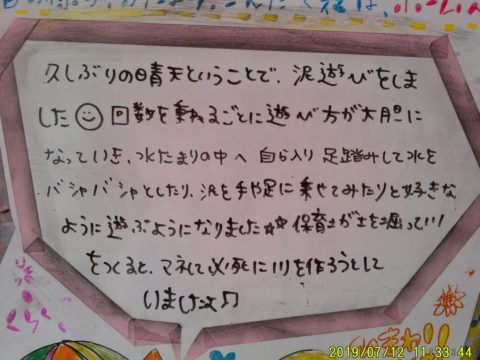 久しぶりの晴天ということで、泥遊びをしま
した☺ 回数を重ねるごとに遊び方が大胆に
なっていき、水たまりの中へ 自ら入り 足踏みして水を
バシャバシャとしたり、泥を手や足に乗せてみたりと好きな
ように遊ぶようになりました☆☆ 保育士が土を掘って川
をつくると、マネして必死に川を作ろうとして
いましたよ♫
2019/07/12 11:33:44